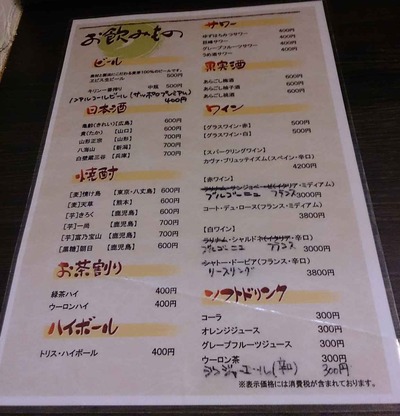 お飲みもの
ビール
エビス生ビール 500円
キリン一番搾り 中瓶 500円
ノンアルコールビール(サッポロプレミアム) 400円
日本酒
亀齢(きれい) [広島] 600円
貴(たか) [山口] 700円
山形正宗 [山形] 700円
八海山 [新潟] 700円
白鷺蔵三谷 [兵庫] 700円
焼酎
[麦]情け島 [東京・八丈島] 600円
[麦]天草 [熊本] 600円
[芋]きろく [鹿児島] 600円
[芋]一尚 [鹿児島] 700円
[芋]富乃宝山 [鹿児島] 700円
[黒糖]朝日 [鹿児島] 600円
お茶割り
緑茶ハイ 400円
ウーロンハイ 400円
ハイボール
トリス・ハイボール 400円
サワー
ゆずはちみつサワー 400円
巨峰サワー 400円
グレープフルーツサワー 400円
うめ酒サワー 400円
果実酒
あらごし梅酒
あらごし柚子酒
あらごし桃酒
ワイン
[グラスワイン・赤] 500円
[グラスワイン・白] 500円
[スパークリングワイン]
カヴァ・ブリュッティズム(スペイン・辛口)
4200円
[赤ワイン]
ミディアム)
ブルゴーニュ フランス 3000円
コート・デュ・ローヌ(フランス・ミディアム)
3800円
[白ワイン]
シャルド 辛口)
ブルゴーニュ フランス 3000円
シャトー・ドービア(フランス・辛口)
リースリング 3800円
ソフトドリンク
コーラ 300円
オレンジジュース 300円
グレープフルーツジュース 300円
ウーロン茶 300円
ジンジャーエール(辛口) 300円
※表示価格には消費税が含まれております。